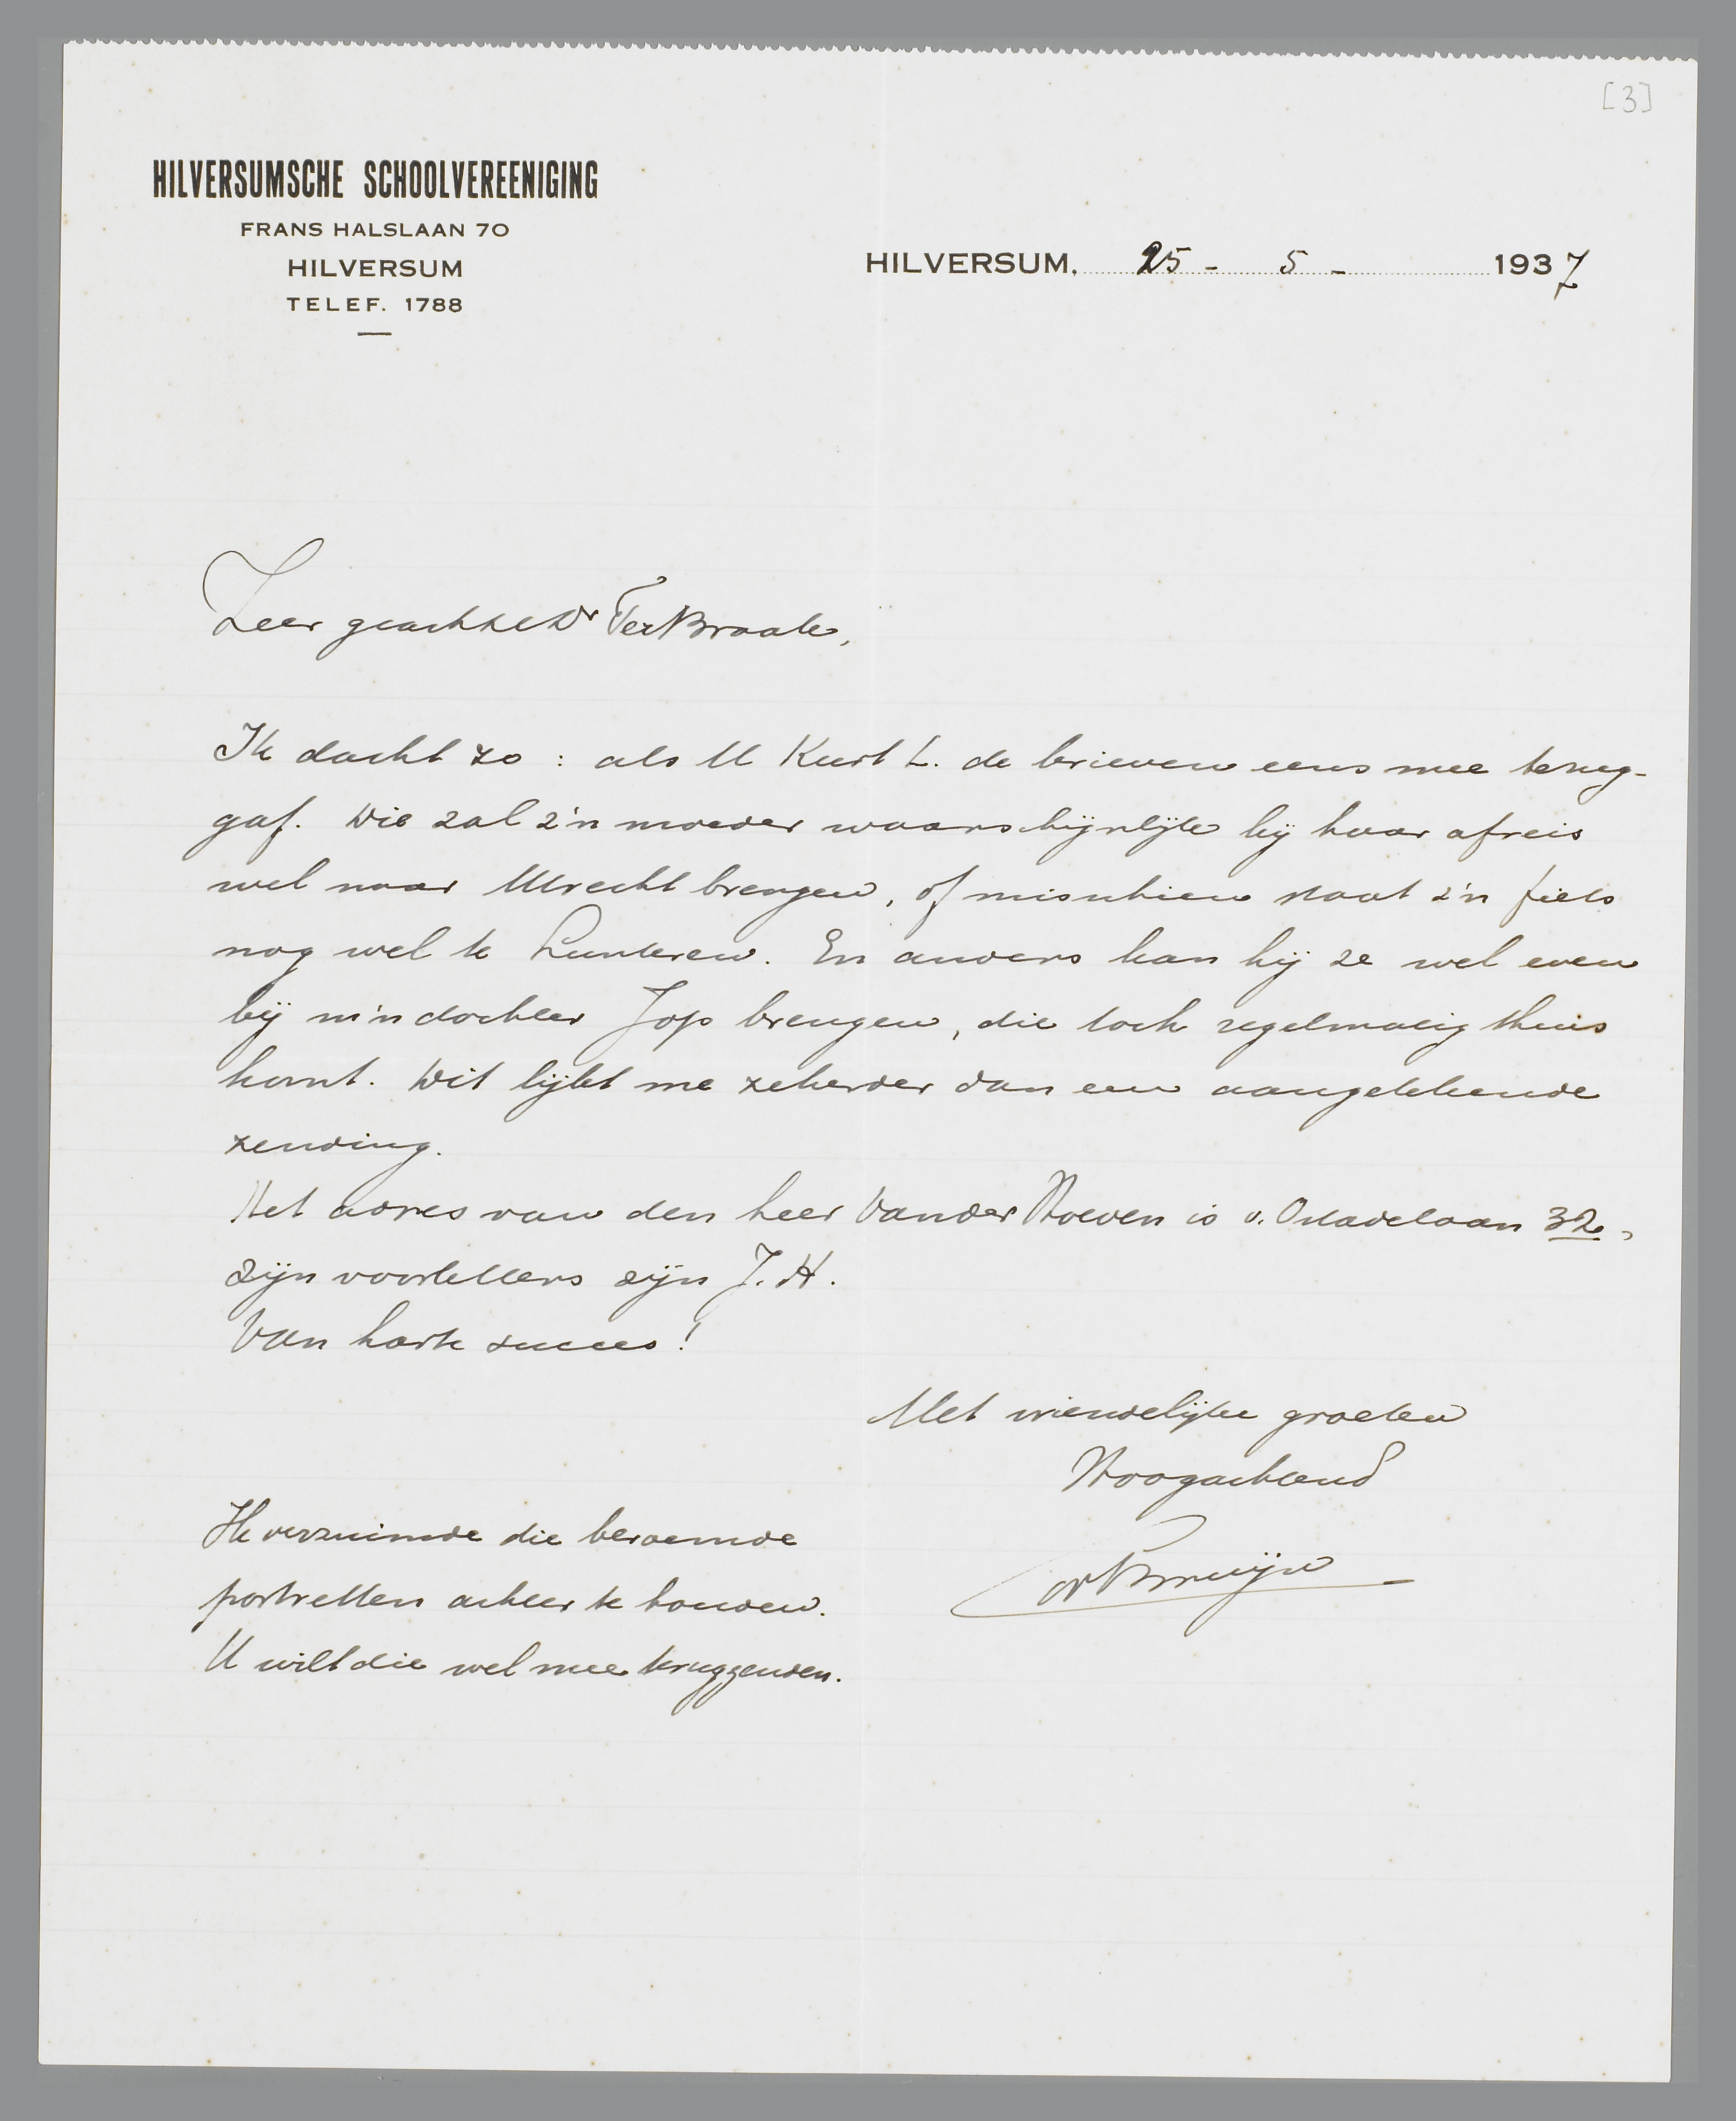 [3]
HILVERSUMSCHE SCHOOLVEREENIGING
FRANS HALSLAAN 70
HILVERSUM
TELEF. 1788
HILVERSUM, 25 - 5 - 1937
Zeer geachte Dr Ter Braak,
Ik dacht zo : als U Kurt L. de brieven eens mee terug-
gaf. Die zal z'n moeder waarschijnlijk bij haar afreis
wel naar Utrecht brengen, of misschien staat z'n fiets
nog wel te Lunteren. En anders kan hij ze wel even
bij m'n dochter Jop brengen, die toch regelmatig thuis
komt. Dit lijkt me zekerder dan een aangetekende
zending.
Het adres van den heer Van der Hoeven is v. Ostadelaan 32,
zijn voorletters zijn J. H.
Van harte succes!
Met vriendelijke groeten
Hoogachtend
dr Bruijn
Ik verzuimde die beroemde
portretten achter te houden.
U wilt die wel mee terugzenden.